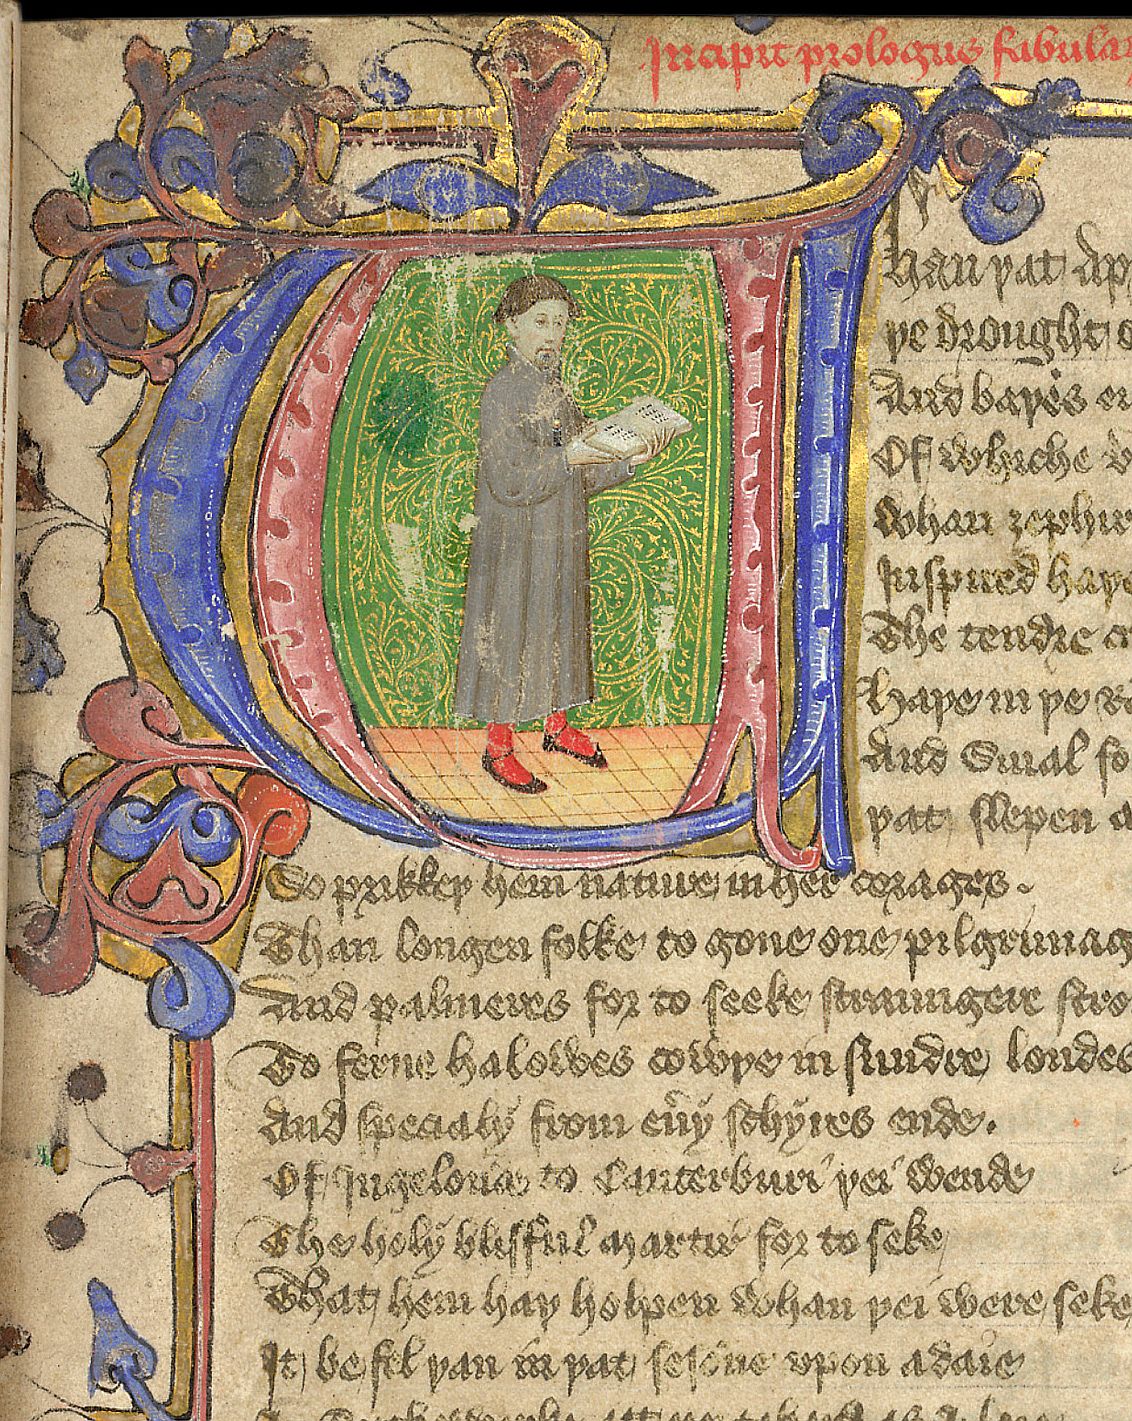 Incipit prologus fabular
Whan þat Ap
þe drought o
And baþes eu
Of whiche v
Whan zephir
Inspired haþe
The tendre c
haþe in þe R
And Smal fo
þat slepen a
So prikkeþ hem nature in her corages.
Than longen folke to gone one pilgrimag
And palmeres for to seeke straungere stro
To ferne halowes cowþe in sundre londes
And specialy from eūy schyres ende.
Of Ingelond to Canterburi þei wende
The holy blisful Martir for to seke
That hem haþ holpen whan þei were seke
It befel þan in þat sesoūe vpon a daie